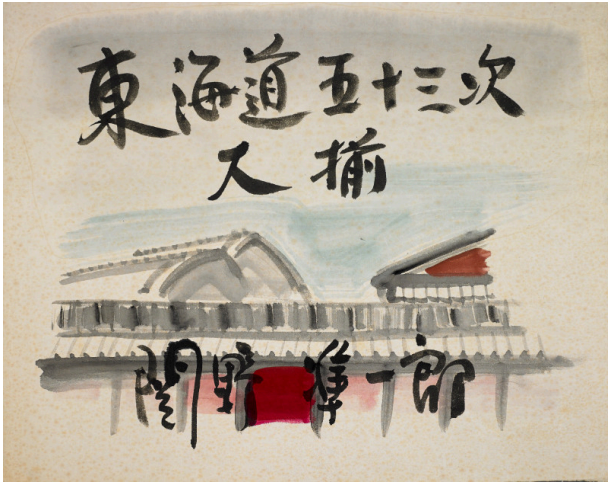 東海道五十三次
大揃
関野凖一郎